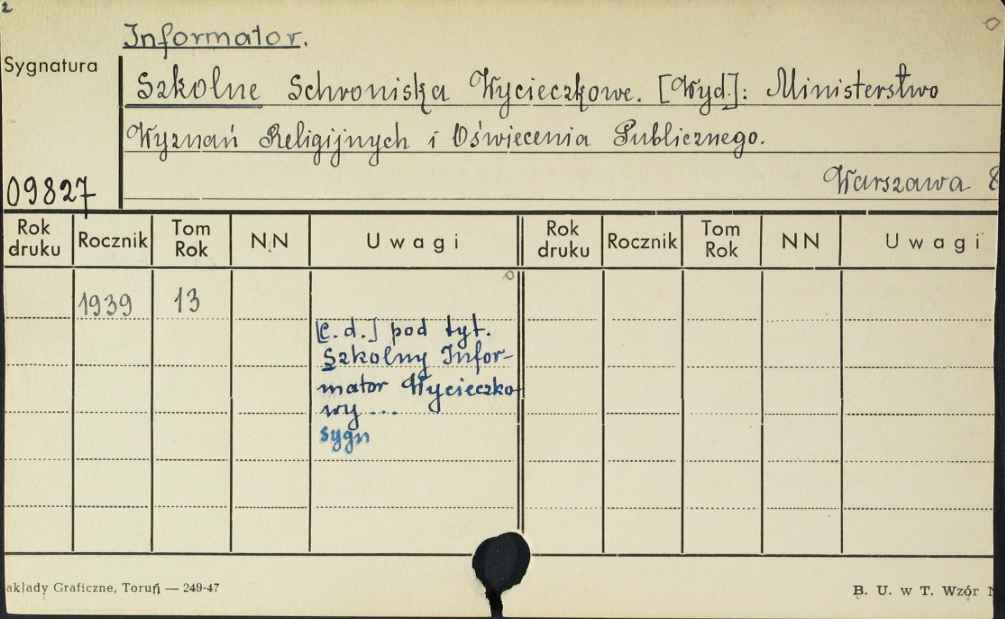 2
Informator.
Sygnatura
Szkolne Schroniska Wycieczkowe. [Wyd.]: Ministerstwo
Wyznań Religijnych i Oświecenia Publicznego.
09827
Warszawa 8
Rok druku Rocznik Tom Rok NN Uwagi Rok druku Rocznik Tom Rok NN Uwagi
1939 13
[C. d.] pod tyt.
Szkolny Infor-
mator Wycieczko
wy ...
sygn
akłady Graficzne, Toruń — 249-47
B. U. w T. Wzór N